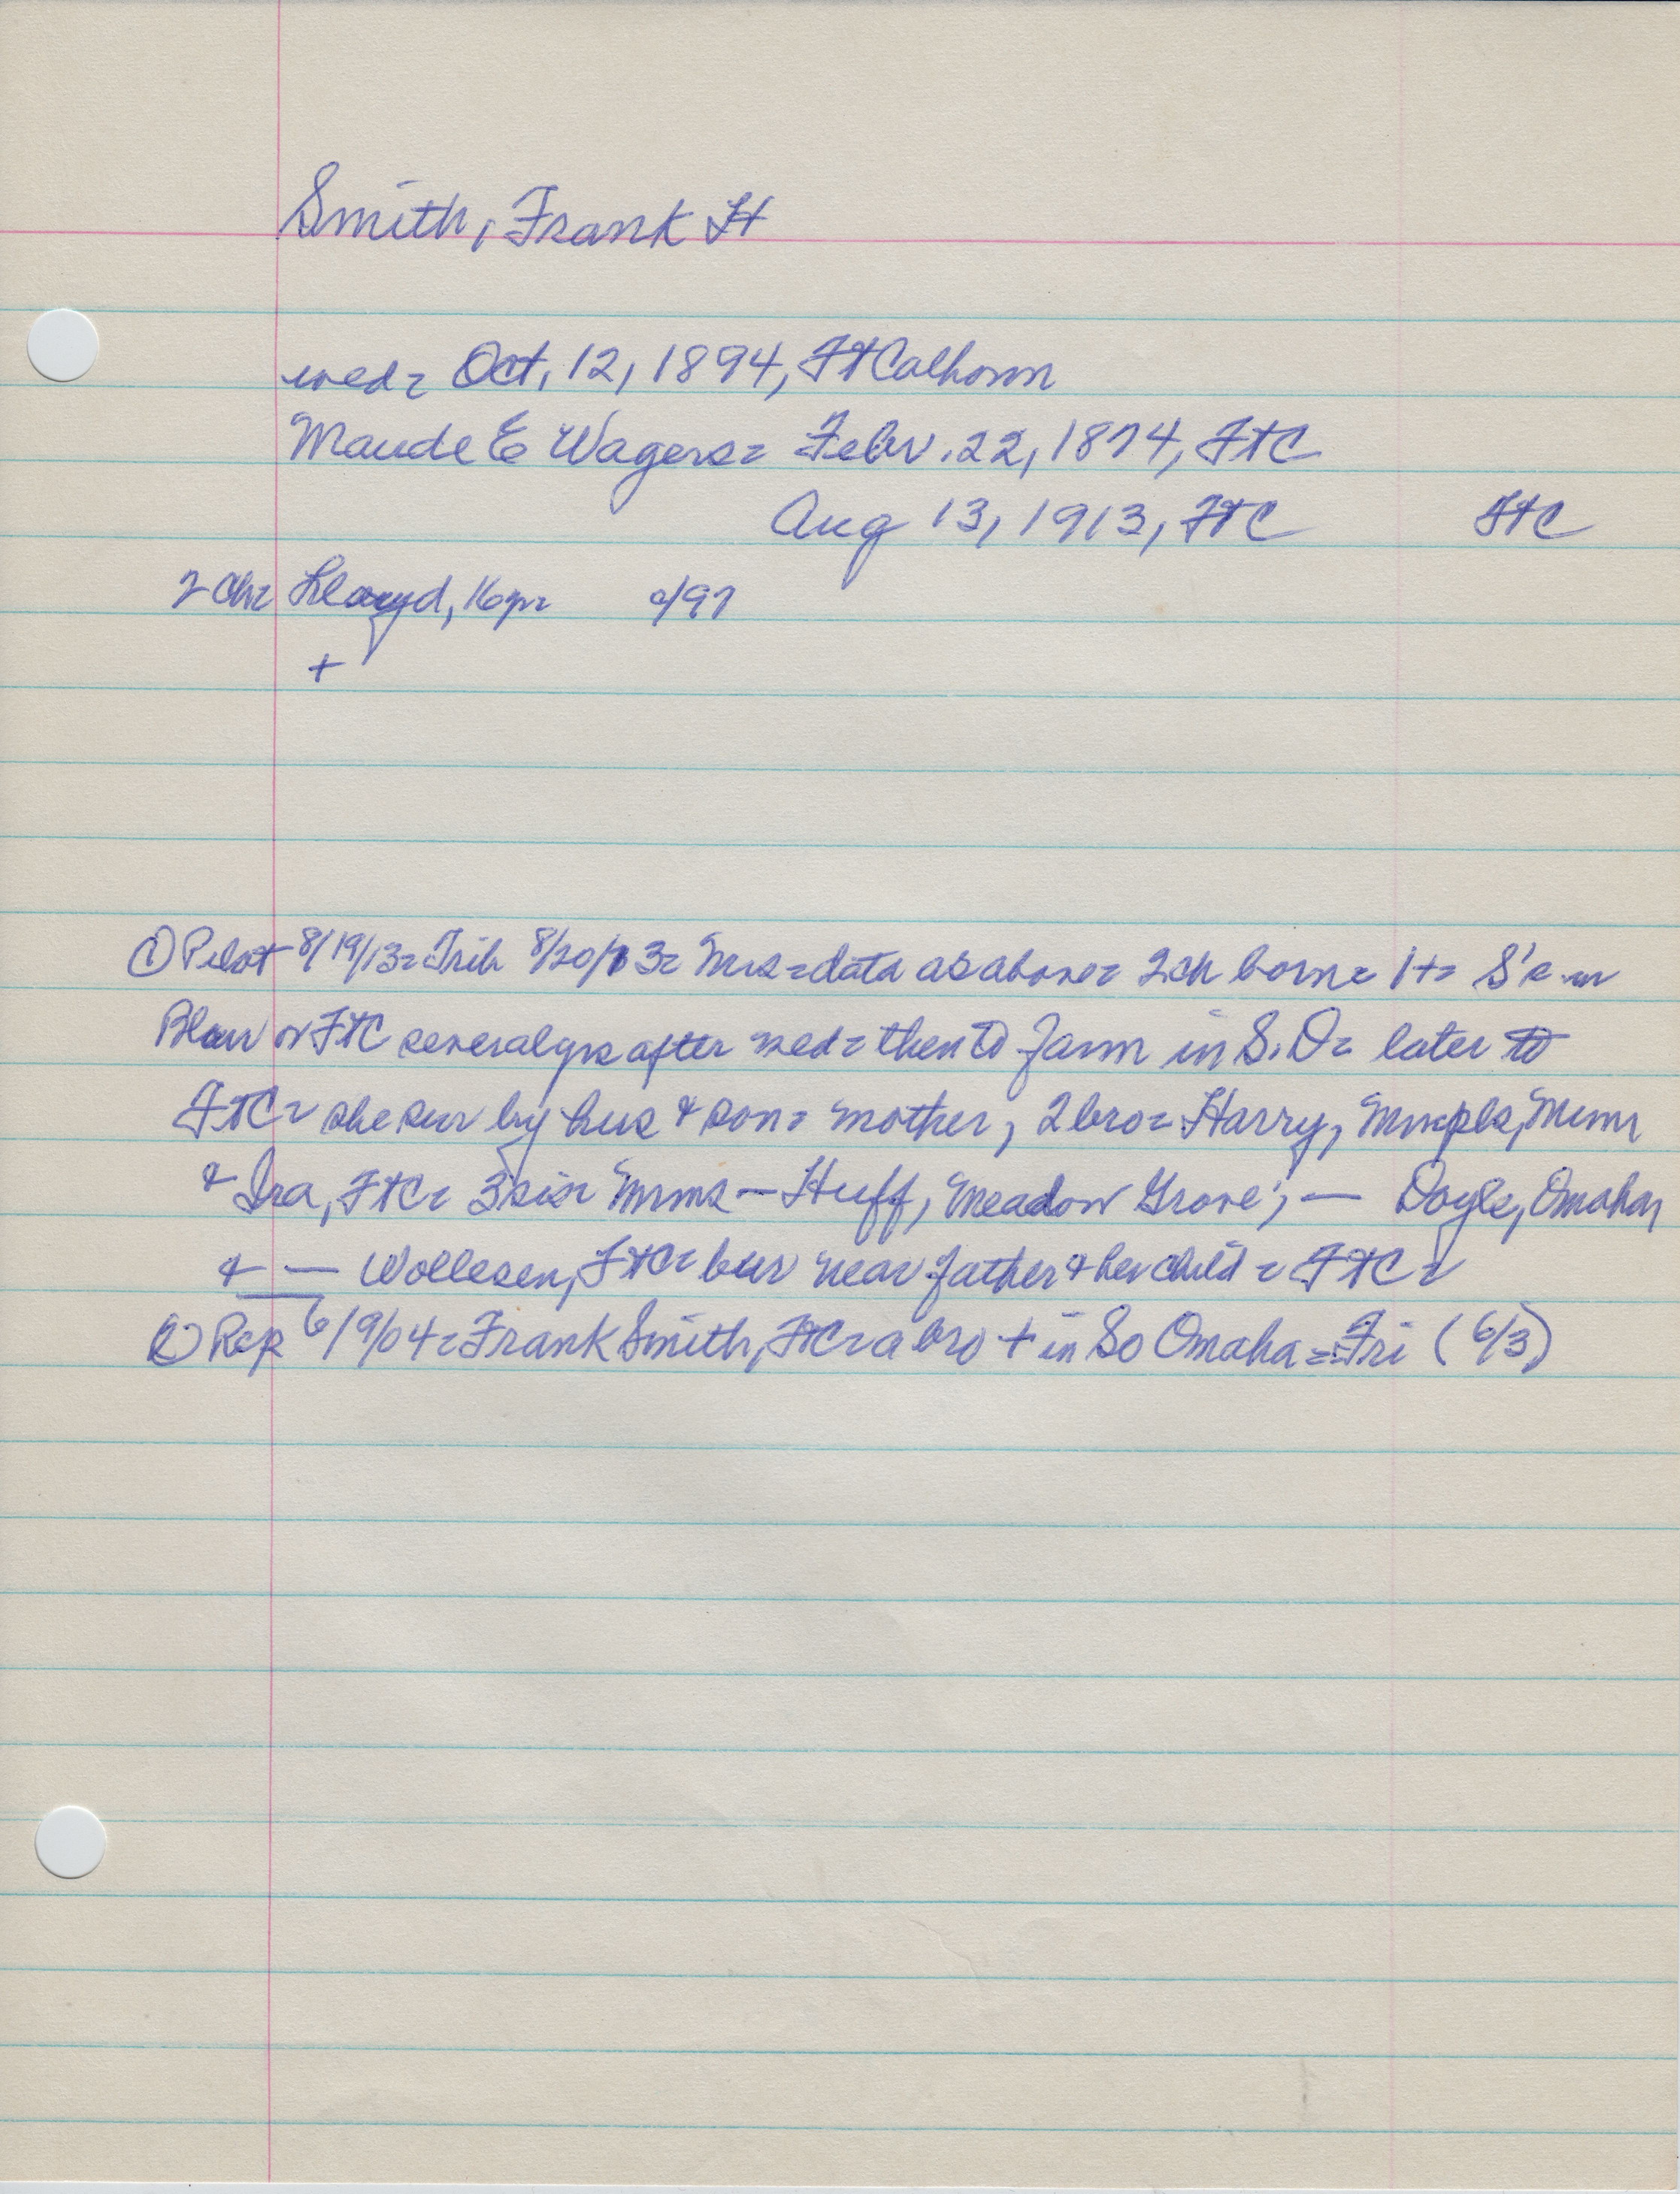 Smith, Frank H
wed= Oct. 12, 1894, FtCalhoun
Maude E Wagers= Febr. 22, 1874, FtC
Aug 13, 1913, FtC FtC
2 ch= Lloyd, 16yr= c/97
+
① Pilot 8/19/13= Trib 8/20/13= Mrs= data as above= 2 ch born= 1+= S's in
Blair or FtC several yrs after wed= then to farm in S.D= later to
FtC= she sur by hus & son= mother, 2 bro= Harry, Mnepls, Minn
& Ira, FtC= 3 sis= Mrms — Huff, Meadow Grove; — Doyle, Omaha,
& — Wollesen, FtC= bur near father & her child = FtC=
② Rep 6/9/04= Frank Smith, FtC= a bro + in So Omaha = Fri (6/3)